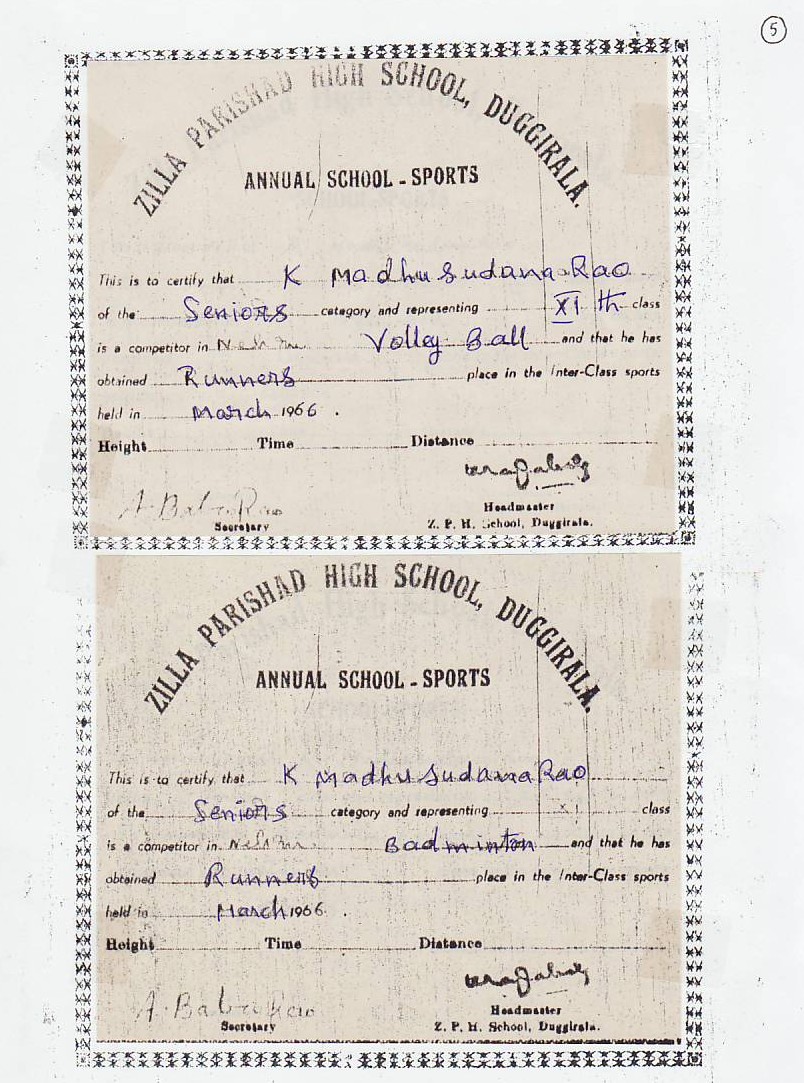 5
ZILLA PARISHAD HIGH SCHOOL, DUGGIRALA.
ANNUAL SCHOOL - SPORTS
This is to certify that K Madhu Sudana Rao
of the Seniors category and representing XI th class
is a competitor in Volley Ball and that he has
obtained Runners place in the Inter-Class sports
held in March 1966 .
Height Time Distance
A. Baba Rao
Secretary
Headmaster
Z. P. H. School, Duggirala.
ZILLA PARISHAD HIGH SCHOOL, DUGGIRALA.
ANNUAL SCHOOL - SPORTS
This is to certify that K Madhu Sudana Rao
of the Seniors category and representing XI class
is a competitor in Badminton and that he has
obtained Runners place in the Inter-Class sports
held in March 1966 .
Height Time Distance
A. Baba Rao
Secretary
Headmaster
Z. P. H. School, Duggirala.